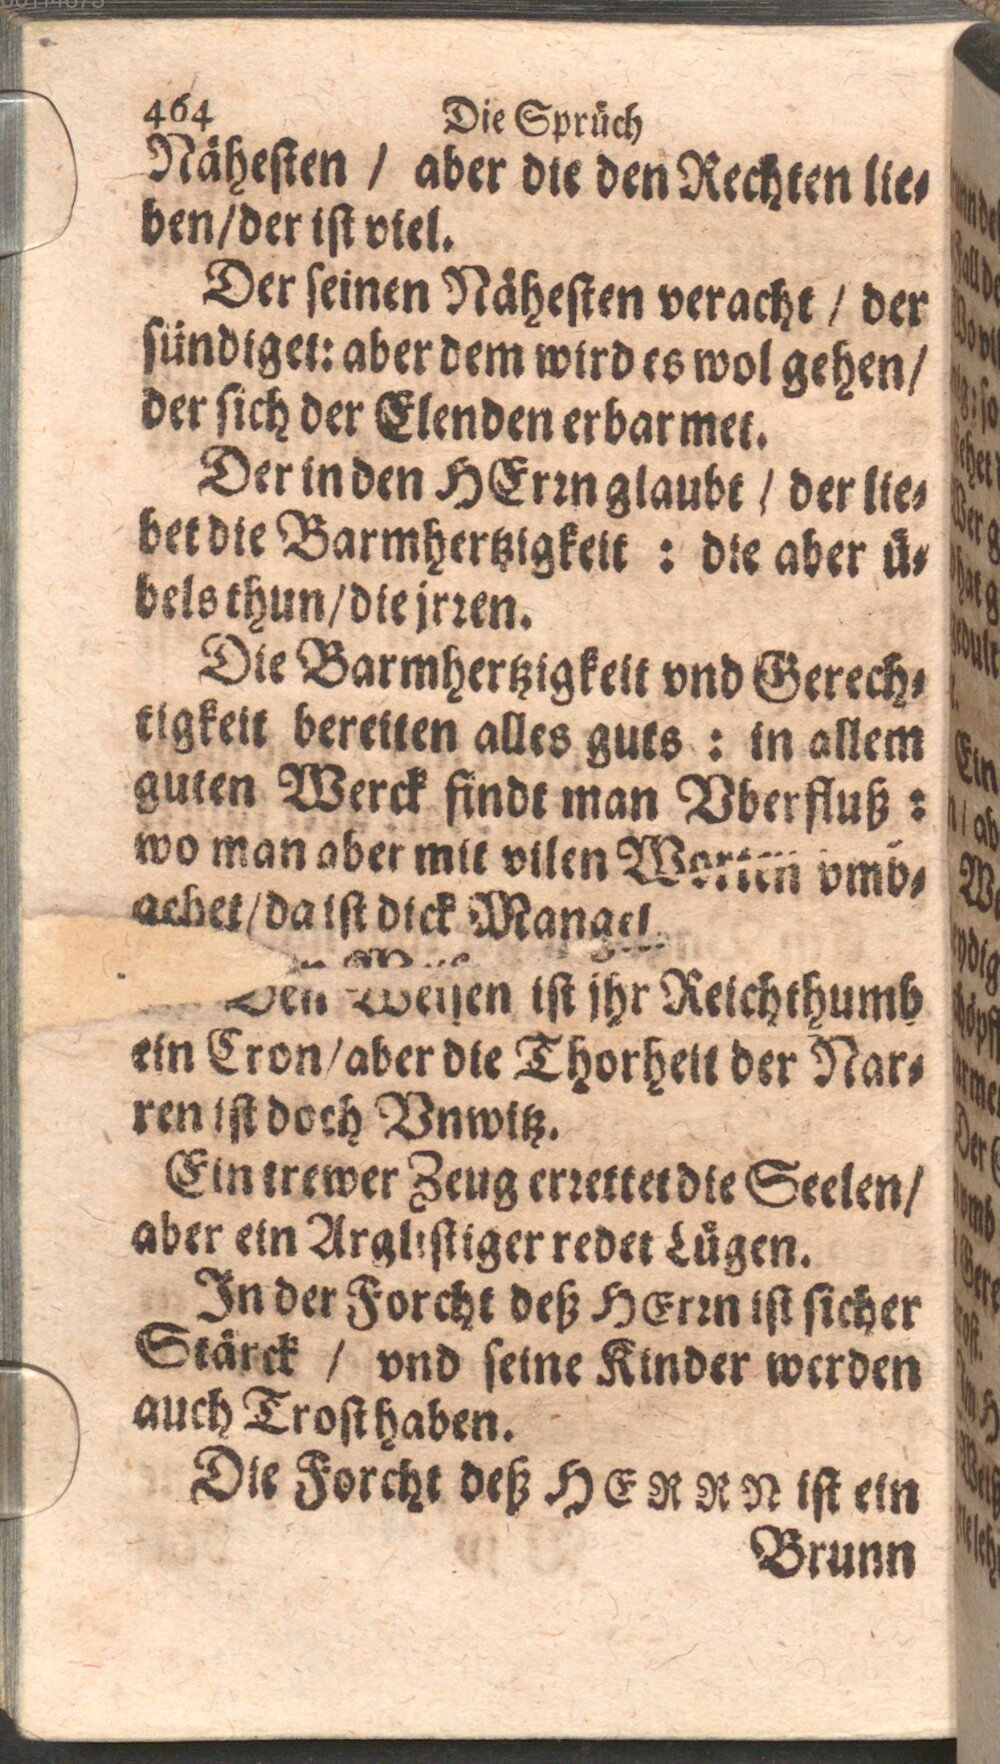 464 Die Sprüch
Nähesten / aber die den Rechten lie⸗
ben/der ist viel.
Der seinen Nähesten veracht / der
sündiget: aber dem wird es wol gehen/
der sich der Elenden erbarmet.
Der in den HErꝛn glaubt / der lie⸗
bet die Barmhertzigkeit : die aber ü⸗
bels thun/die jrꝛen.
Die Barmhertzigkeit vnd Gerech⸗
tigkeit bereiten alles guts : in allem
guten Werck findt man Vberfluß :
wo man aber mit vilen Worten vmb⸗
achet/da ist dick Mangel
Den Weisen ist jhr Reichthumb
ein Cron/aber die Thorheit der Nar⸗
ren ist doch Vnwitz.
Ein trewer Zeug erꝛettet die Seelen/
aber ein Arglistiger redet Lügen.
In der Forcht deß HErꝛn ist sicher
Stärck / vnd seine Kinder werden
auch Trost haben.
Die Forcht deß HERRN ist ein
Brunn